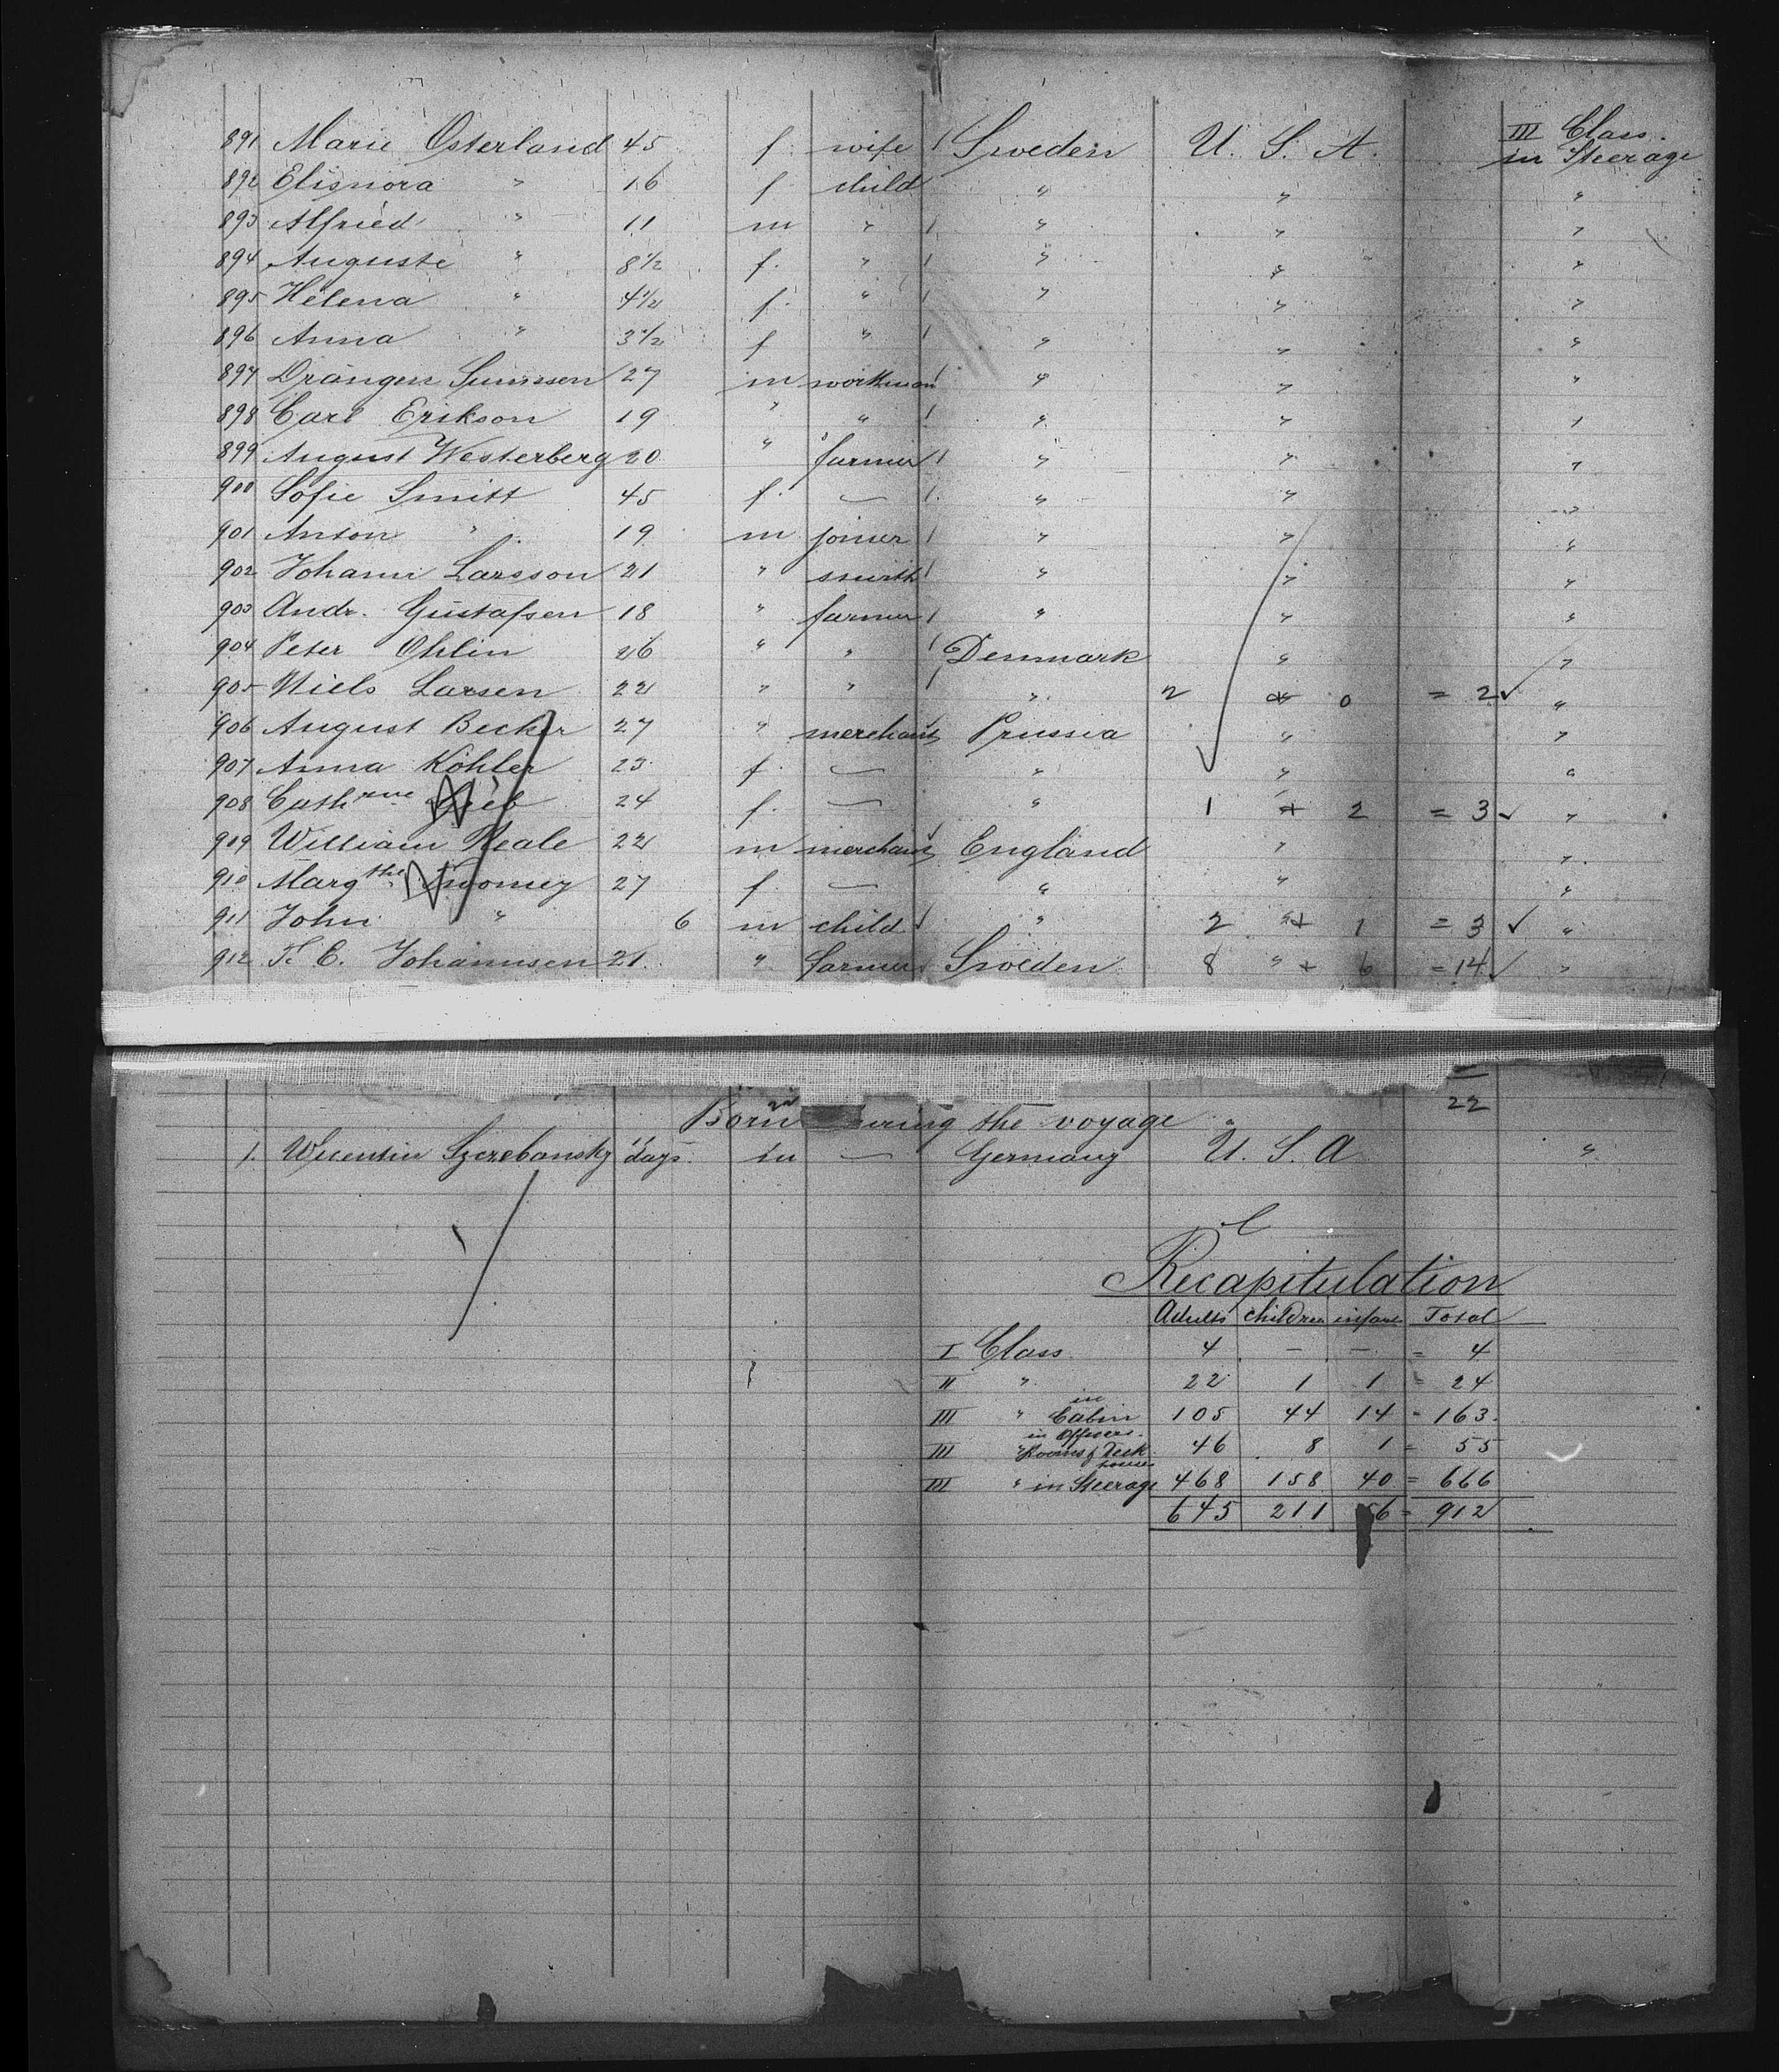 891 Marie Osterland 45 f. wife / Sweden U. S. A. III Class. in Steerage
892 Elisnora " 16 f. child " " "
893 Alfried " 11 m " / " " "
894 Auguste " 8 1/2 f. " / " " "
895 Helena " 4 1/2 f. " / " " "
896 Anna " 3 1/2 f " / " " "
897 Drängen 27 m workman / " " "
898 Carl Erikson 19 " " / " " "
899 August Westerberg 20 " farmer / " " "
900 Sofie Smitt 45 f. — / " " "
901 Anton " 19 m joiner / " " "
902 Johann Larsson 21 " smith / " " "
903 Andr. Gustafsen 18 " farmer / " " "
904 Peter Ohlin 26 " " / Denmark " "
905 Niels Larsen 22 " " / " 2 + 0 = 2 ✓ "
906 August Becker 27 " merchant Prussia " "
907 Anna Köhler 23 f. — " " "
908 Cathrine 24 f. — " 1 + 2 = 3 ✓ "
909 William Neale 22 m merchant England " "
910 Margthe 27 f. — " " "
911 John " 6 m child / " 2 + 1 = 3 ✓ "
912 F. C. Johannsen 21 " farmer Sweden 8 " + 6 = 14 ✓ "
22
Born during the voyage "
1. Szczebansky 11 days m — Germany U. S. A "
Recapitulation
Adults children infants Total
I Class 4 - - = 4
II " 22 1 1 = 24
III " in Cabin 105 44 14 = 163
III " in Officers Rooms & Deck houses 46 8 1 = 55
III " in Steerage 468 158 40 = 666
645 211 56 = 912